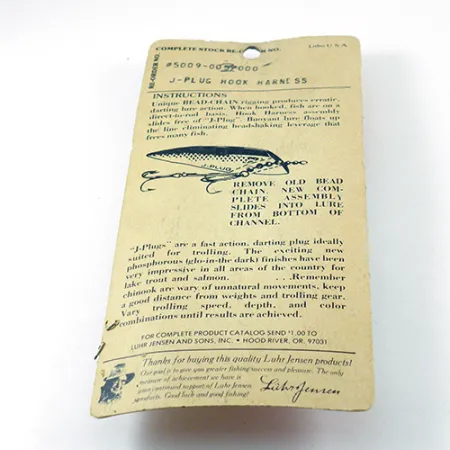 COMPLETE STOCK RE-ORDER NO. Litho U.S.A.
RE-ORDER NO.
#5009-00 000
J-PLUG HOOK HARNESS
INSTRUCTIONS
Unique BEAD-CHAIN rigging produces erratic,
darting lure action. When hooked, fish are on a
direct-to-rod basis. Hook Harness assembly
slides free of "J-Plug." Buoyant lure floats up
the line eliminating headshaking leverage that
frees many fish.
J-PLUG
REMOVE OLD BEAD
CHAIN. NEW COM-
PLETE ASSEMBLY
SLIDES INTO LURE
FROM BOTTOM OF
CHANNEL.
"J-Plugs" are a fast action, darting plug ideally
suited for trolling. The exciting new
phosphorous (glo-in-the dark) finishes have been
very impressive in all areas of the country for
lake trout and salmon. . . .Remember
chinook are wary of unnatural movements, keep
a good distance from weights and trolling gear.
Vary trolling speed, depth, and color
combinations until results are achieved.
FOR COMPLETE PRODUCT CATALOG SEND $1.00 TO
LUHR JENSEN AND SONS, INC. • HOOD RIVER, OR. 97031
Thanks for buying this quality Luhr Jensen products!
Our goal is to give you greater fishing success and pleasure. The only
measure of achievement we have is
your continued support of Luhr Jensen
products. Good luck and good fishing!
Luhr Jensen